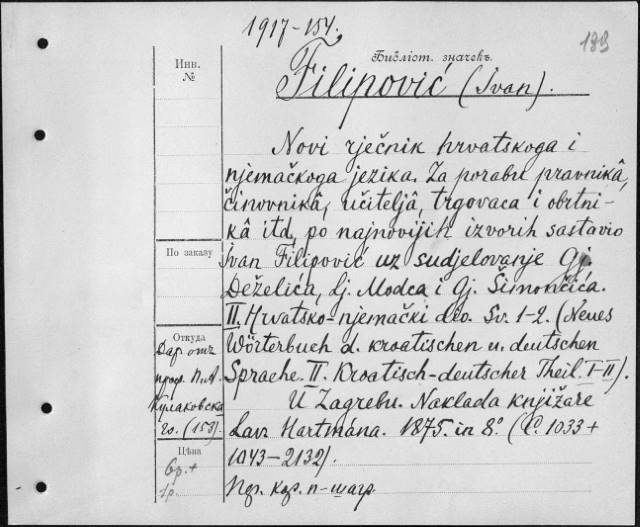 1917-154.
189
Инв.
№
Библіот. значекъ.
Filipović (Ivan).
Novi rječnik hrvatskoga i
njemačkoga jezika. Za porabu pravnikâ,
činovnikâ, učiteljâ, trgovaca i obrtni-
kâ itd, po najnovijih izvorih sastavio
Ivan Filipović uz sudjelovanje Gj.
Deželića, Lj. Modca i Gj. Šimončića.
II. Hrvatsko-njemački dio. Sv. 1-2. (Neues
Wörterbuch d. kroatischen u. deutschen
Sprache. II. Kroatisch-deutscher Theil. I-II).
U Zagrebu. Naklada knjižare
Lav. Hartmána. 1875. in 8º (C. 1033+
1043-2132).
По заказу
Откуда
Дар. отъ
проф. П. А.
Кулаковска
го. (153).
Цѣна
6р.+